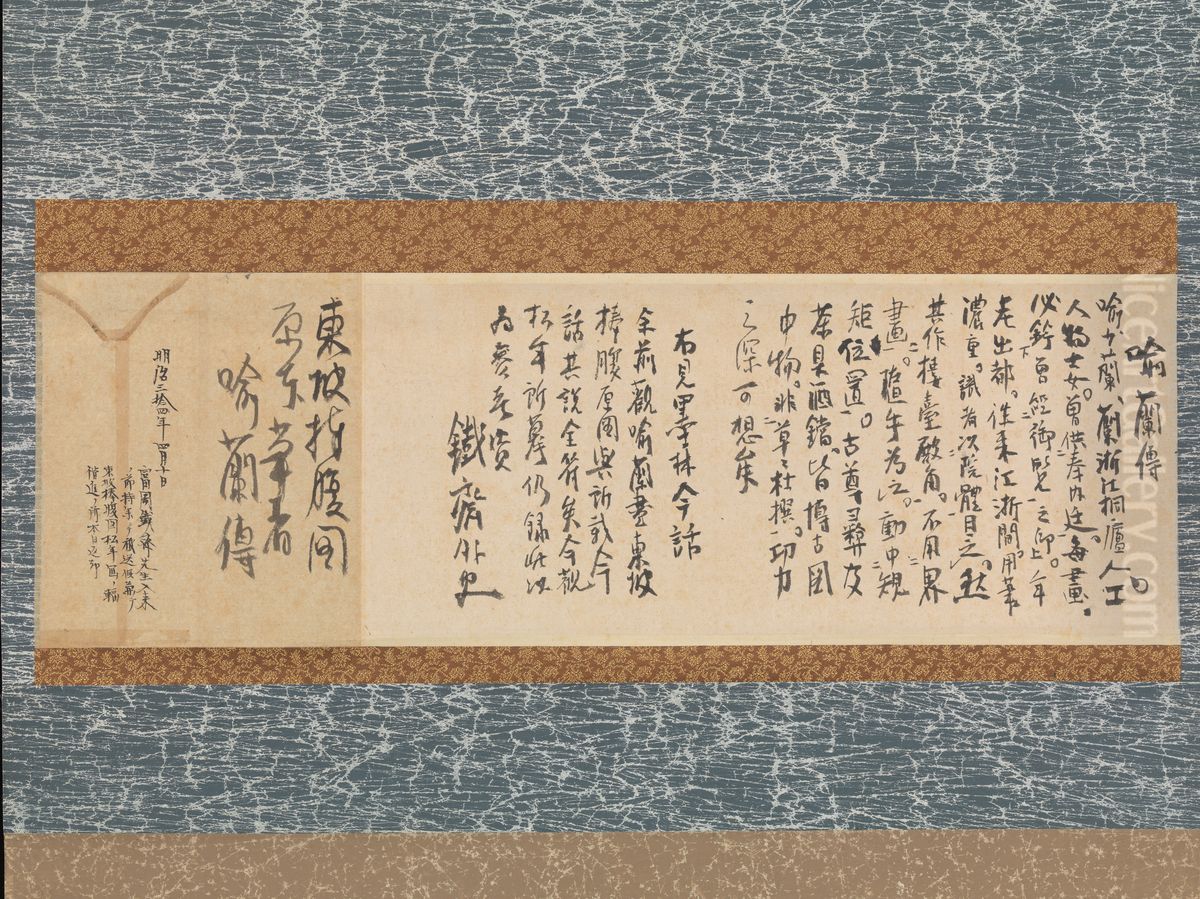 喻蘭傳
喻少蘭、蘭浙江桐廬人、工
人物士女。曽供奉内廷。毎畫
必鈐曽經御覽之印。上年
老出都。往來江浙間。用筆
濃重。識者以院體目之。然
其作樓臺殿角。不用界
畫。随手為之。動中規
矩位置。古尊彝及
茶具酒鐺。皆博古圖
中物。非草々杜撰。功力
之深可想矣
右見墨林今話
余前觀喻蘭畫東坡
捧腹原圖與所載今
話其説全符矣今觀
松年所摹仍録此以
為參考資
鐵齋外史
東坡捧腹図
原本筆者
喻蘭傳
明治三拾四年 四月十日
富岡鐵齋先生入来
東坡捧腹図松年画